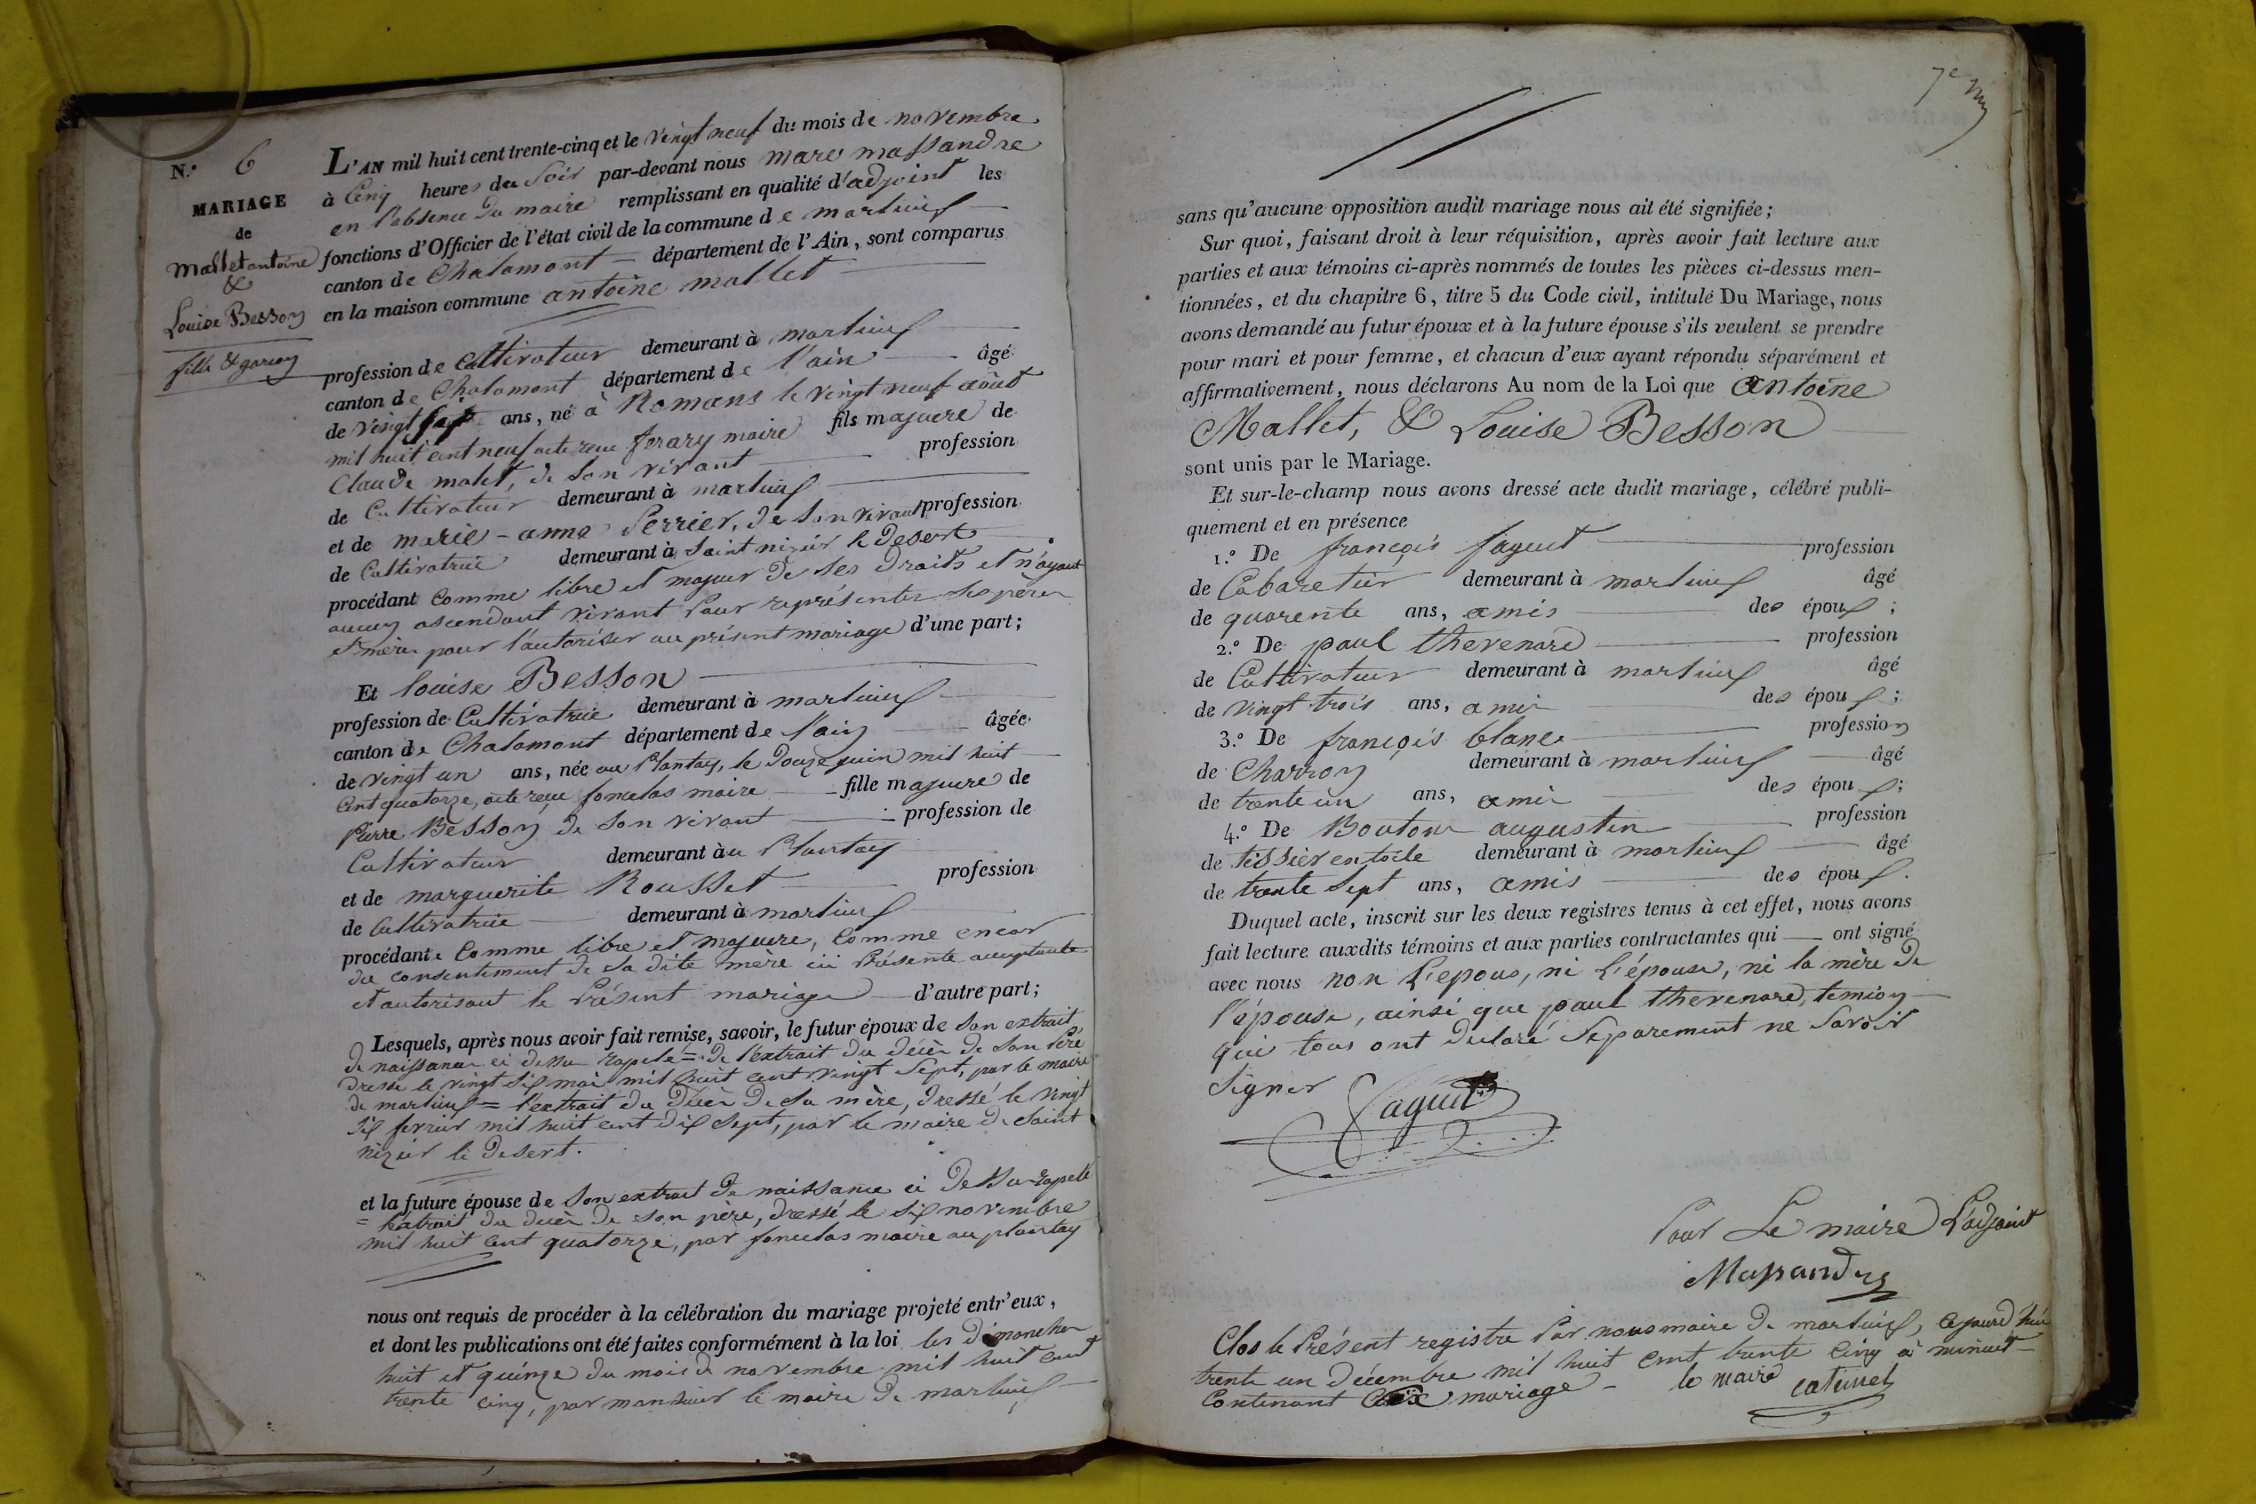 N.º 6
MARIAGE
de
Mallet antoine
&
Louise Besson
fille & garçon
L'AN mil huit cent trente-cinq et le vingt neuf du mois de novembre
à Cinq heures du Soir par-devant nous marc massandre
en l'absence du maire remplissant en qualité d'adjoint les
fonctions d'Officier de l'état civil de la commune de marlieux
canton de Chalamont département de l'Ain, sont comparus
en la maison commune antoine mallet
profession de Cultivateur demeurant à marlieux
canton de Chalamont département de l'ain âgé
de vingt six ans, né à Romans le vingt neuf août
mil huit cent neuf acte reçu ferary maire fils majeure de
Claude malet, de son vivant profession
de Cultivateur demeurant à marlieux
et de marie-anne Perrier, de son vivant profession
de Cultivatrice demeurant à Saint nizier le Desert
procédant Comme libre et majeur de ses droits et n'ayant
aucun ascendant vivant Pour représenter ses père
et mère pour l'autoriser au présent mariage d'une part;
Et louise Besson
profession de Cultivatrice demeurant à marlieux
canton de Chalamont département de l'ain âgée
de vingt un ans, née au Plantay, le Douze juin mil huit
Cent quatorze, acte reçu fonculas maire fille majeure de
Pierre Besson de son vivant profession de
Cultivateur demeurant au Plantay
et de marguerite Rousset profession
de Cultivatrice demeurant à marlieux
procédant Comme libre et majeure, Comme encor
du consentement de sa dite mère ici Présente acceptante
et autorisant le Présent mariage d'autre part;
Lesquels, après nous avoir fait remise, savoir, le futur époux de son extrait
de naissance ci dessu rapelé = de l'extrait du décès de son Père
dressé le vingt six mai mil huit cent vingt sept, par le maire
de marlieux = l'extrait du décès de sa mère, dressé le vingt
six fevrier mil huit cent dix sept, par le maire de Saint
nizier le Desert.
et la future épouse de son extrait de naissance ci dessu rapelé
= l'extrait du décès de son père, dressé le six novembre
mil huit cent quatorze, par fonculas maire au plantay
nous ont requis de procéder à la célébration du mariage projeté entr'eux,
et dont les publications ont été faites conformément à la loi les dimanches
huit et quinze du mois de novembre mil huit cent
trente cinq, par monsieur le maire de marlieux
7e
sans qu'aucune opposition audit mariage nous ait été signifiée;
Sur quoi, faisant droit à leur réquisition, après avoir fait lecture aux
parties et aux témoins ci-après nommés de toutes les pièces ci-dessus men-
tionnées, et du chapitre 6, titre 5 du Code civil, intitulé Du Mariage, nous
avons demandé au futur époux et à la future épouse s'ils veulent se prendre
pour mari et pour femme, et chacun d'eux ayant répondu séparément et
affirmativement, nous déclarons Au nom de la Loi que Antoine
Mallet, & Louise Besson
sont unis par le Mariage.
Et sur-le-champ nous avons dressé acte dudit mariage, célébré publi-
quement et en présence
1.º De françois faguet profession
de Cabaretier demeurant à marlieux âgé
de quarente ans, amis des époux;
2.º De paul thevenard profession
de Cultivateur demeurant à marlieux âgé
de vingt trois ans, amis des époux;
3.º De françois blanc profession
de Charron demeurant à marlieux âgé
de trente un ans, amis des époux;
4.º De Bouton augustin profession
de tissier en toile demeurant à marlieux âgé
de trente Sept ans, amis des époux.
Duquel acte, inscrit sur les deux registres tenus à cet effet, nous avons
fait lecture auxdits témoins et aux parties contractantes qui ont signé
avec nous non l'epous, ni l'épouse, ni la mère de
l'épouse, ainsi que paul thevenard, temoin
qui tous ont declaré séparement ne Savoir
Signer
Faguet
Pour Le maire L'adjoint
Massandre
Clos le Présent registre Par nous maire de marlieux, cejourd'hui
trente un décembre mil huit cent trente cinq à minuit
Contenant six mariage le maire